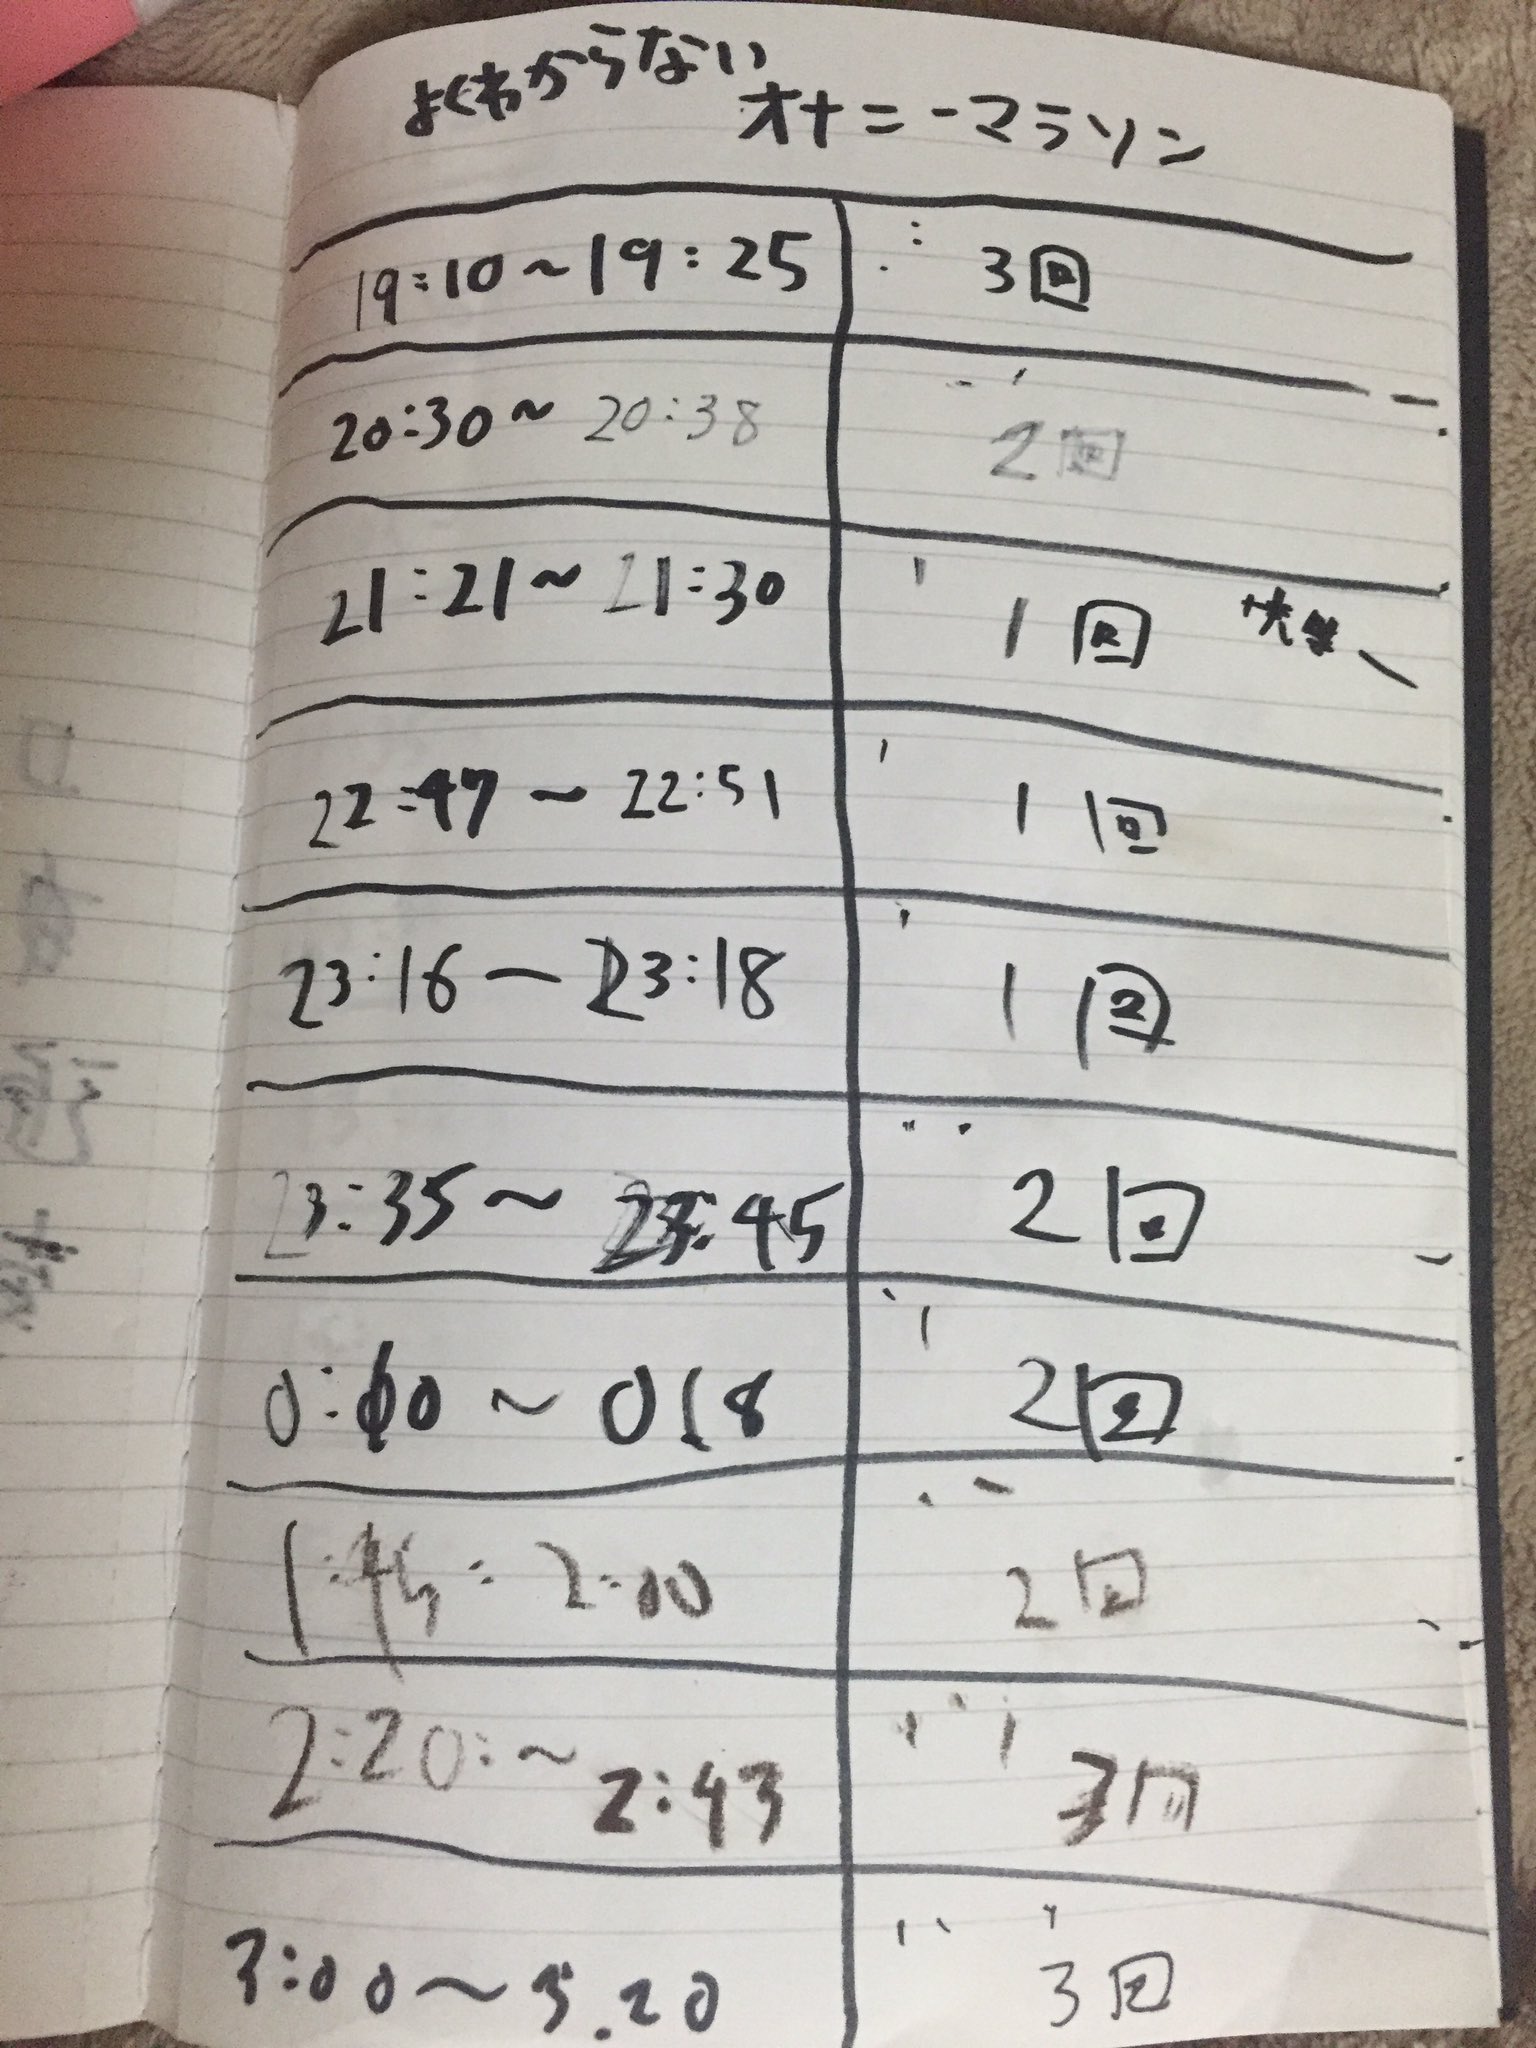 よくわからない
オナニーマラソン
19:10～19:25 3回
20:30～20:38 2回
21:21～21:30 1回
22:47～22:51 1回
23:16～23:18 1回
23:35～23:45 2回
0:10～0:18 2回
1:45:2:00 2回
2:20:～2:43 3回
3:00～3.20 3回